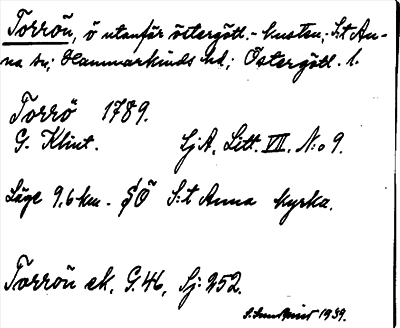 Torrön, ö utanför östergötl.-kusten; S:t An-
na sn; Hammarkinds hd; Östergötl. l.
Torrö 1789.
G. Klint. SjA, Litt. VII. N:o 9.
Läge 9,6 km. SÖ S:t Anna kyrka.
Torrön ek. G.46, Sj: 252.
1939.